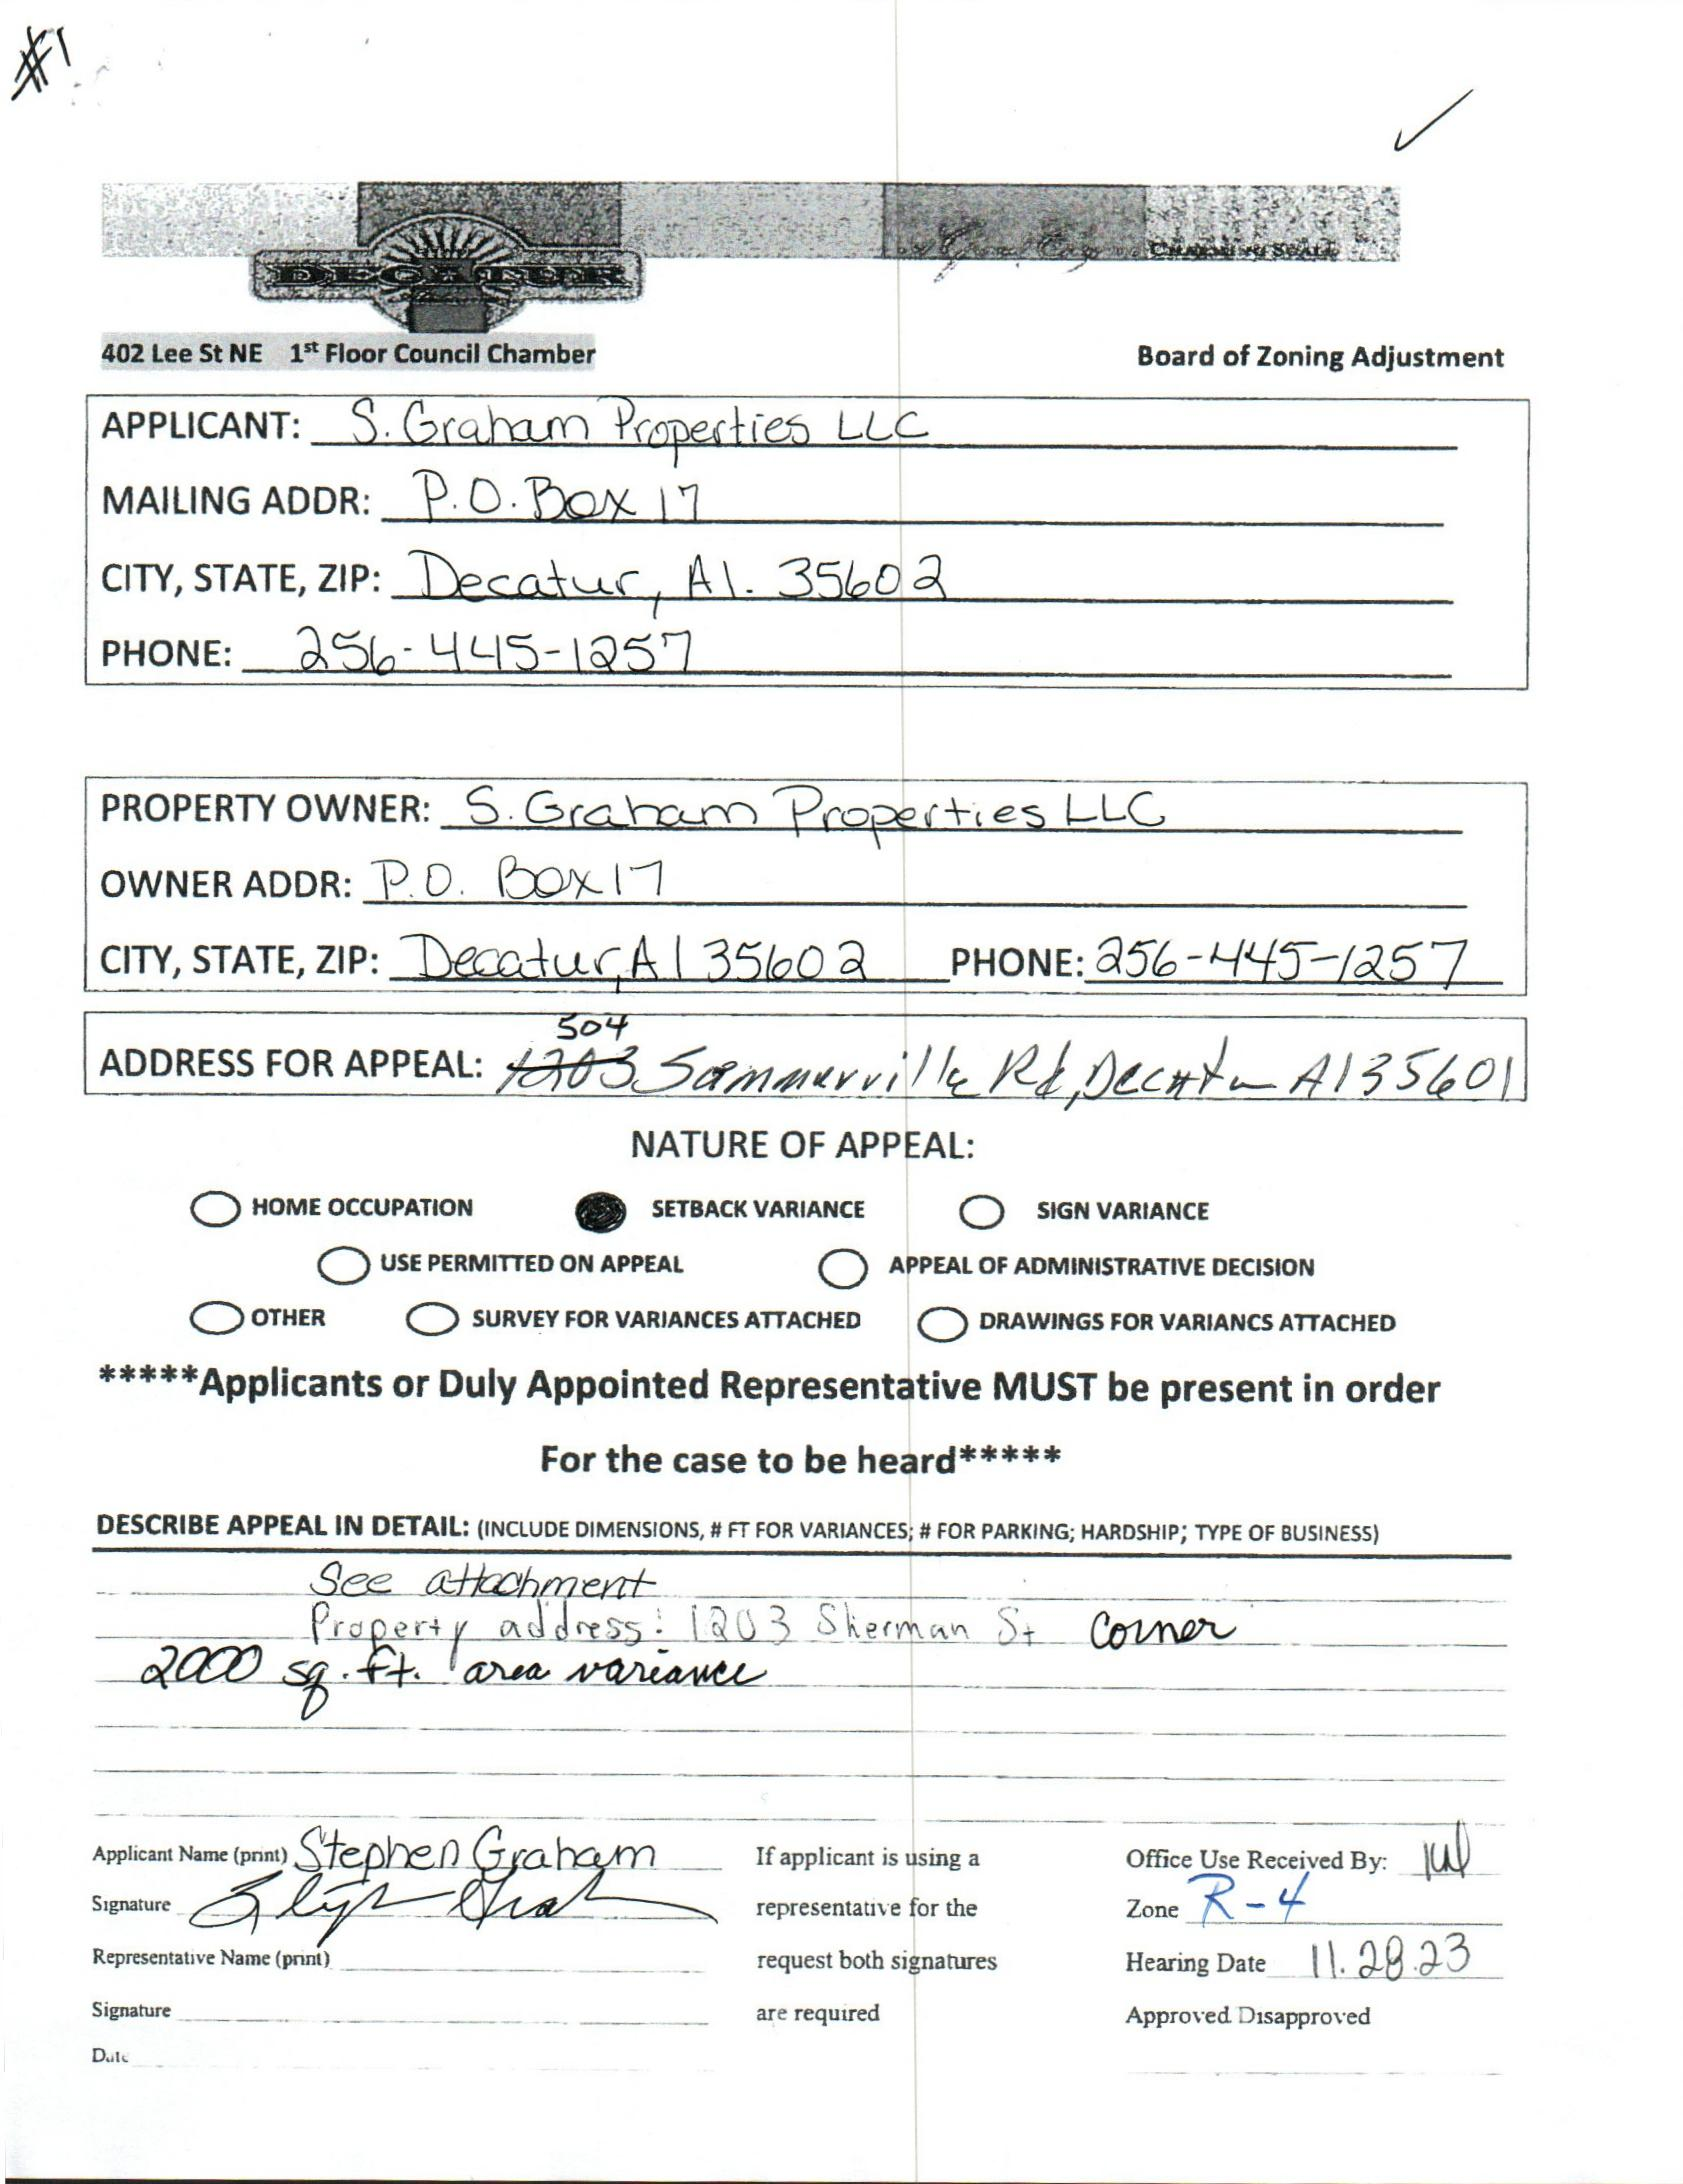 #1
DECATUR
402 Lee St NE 1st Floor Council Chamber
Board of Zoning Adjustment
APPLICANT: S. Graham Properties LLC
MAILING ADDR: P.O. Box 17
CITY, STATE, ZIP: Decatur, Al. 35602
PHONE: 256-445-1257
PROPERTY OWNER: S. Graham Properties LLC
OWNER ADDR: P.O. Box 17
CITY, STATE, ZIP: Decatur, Al 35602 PHONE: 256-445-1257
504
ADDRESS FOR APPEAL: 1203 Sommerville Rd, Decatur Al 35601
NATURE OF APPEAL:
HOME OCCUPATION SETBACK VARIANCE SIGN VARIANCE
USE PERMITTED ON APPEAL APPEAL OF ADMINISTRATIVE DECISION
OTHER SURVEY FOR VARIANCES ATTACHED DRAWINGS FOR VARIANCS ATTACHED
*****Applicants or Duly Appointed Representative MUST be present in order
For the case to be heard*****
DESCRIBE APPEAL IN DETAIL: (INCLUDE DIMENSIONS, # FT FOR VARIANCES; # FOR PARKING; HARDSHIP; TYPE OF BUSINESS)
See attachment
Property address: 1203 Sherman St Corner
2000 sq. ft. area variance
Applicant Name (print) Stephen Graham If applicant is using a Office Use Received By:
Signature representative for the Zone R-4
Representative Name (print) request both signatures Hearing Date 11.28.23
Signature are required Approved Disapproved
Date